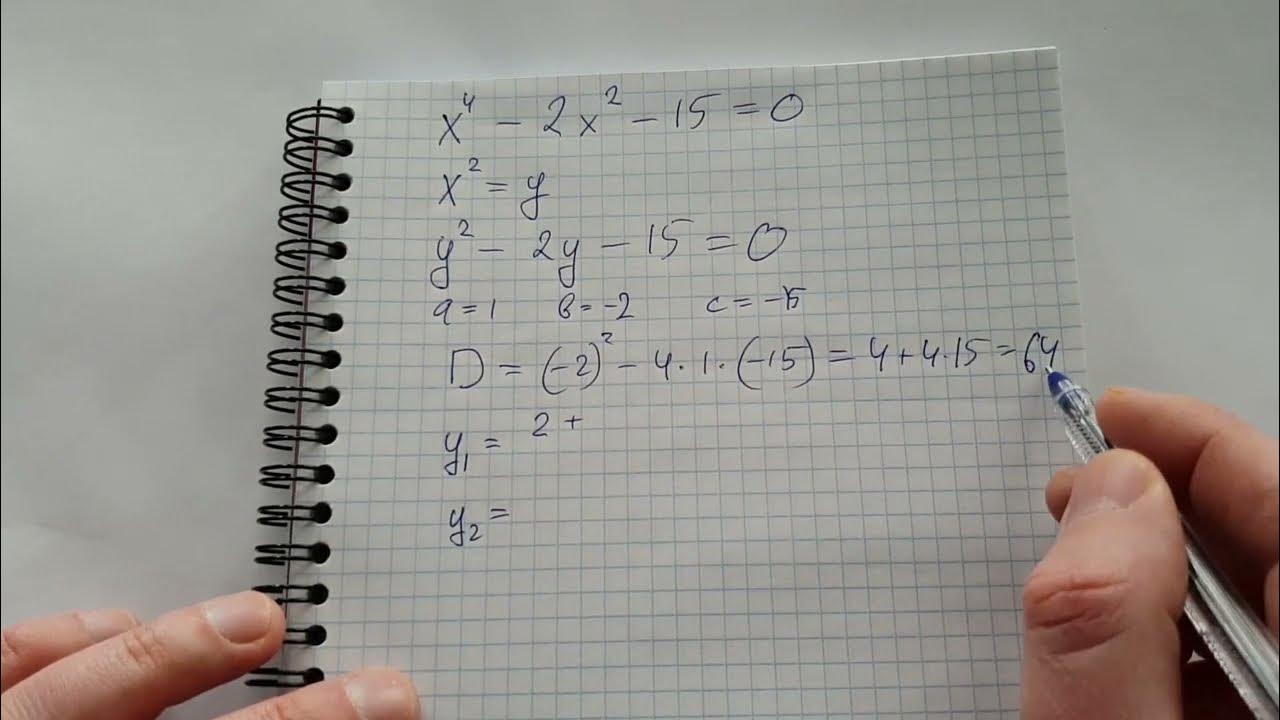 x⁴ - 2x² - 15 = 0
x² = y
y² - 2y - 15 = 0
a = 1 в = -2 c = -15
D = (-2)² - 4·1·(-15) = 4 + 4·15 = 64
y₁ = 2 +
y₂ =